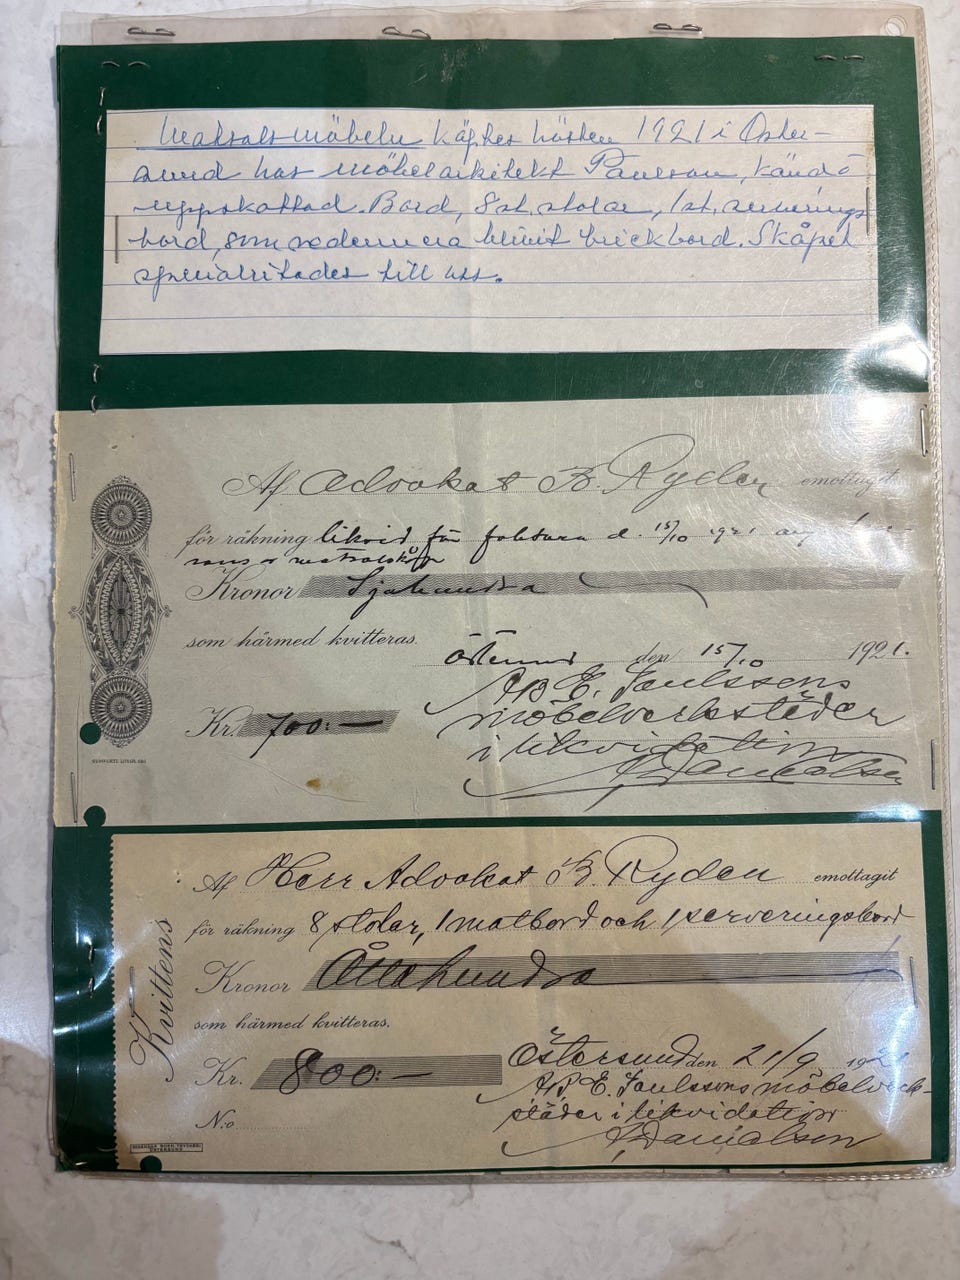 Matsalsmöbeln köptes hösten 1921 i Öster-
sund hos möbelarkitekt Paulson, känd o
uppskattad. Bord, 8 st. stolar, 1 st. serverings
bord, som sedermera blivit brickbord. Skåpet
specialritades till oss.
Af Advokat B. Ryden emottagit
för räkning likvid för faktura d. 15/10 1921
Kronor Sjuhundra
som härmed kvitteras.
Östersund den 15/10 1921.
AB E. Paulssons
möbelverkstäder
Kr. 700:—
i likvidation
Danielson
Af Herr Advokat B. Ryden emottagit
för räkning 8 stolar, 1 matbord och 1 serveringsbord
Kronor Åttahundra
som härmed kvitteras.
Kvittens
Östersund den 21/9 1921
Kr. 800:—
AB E. Paulssons möbelverk-
städer i likvidation
N:o
Danielson